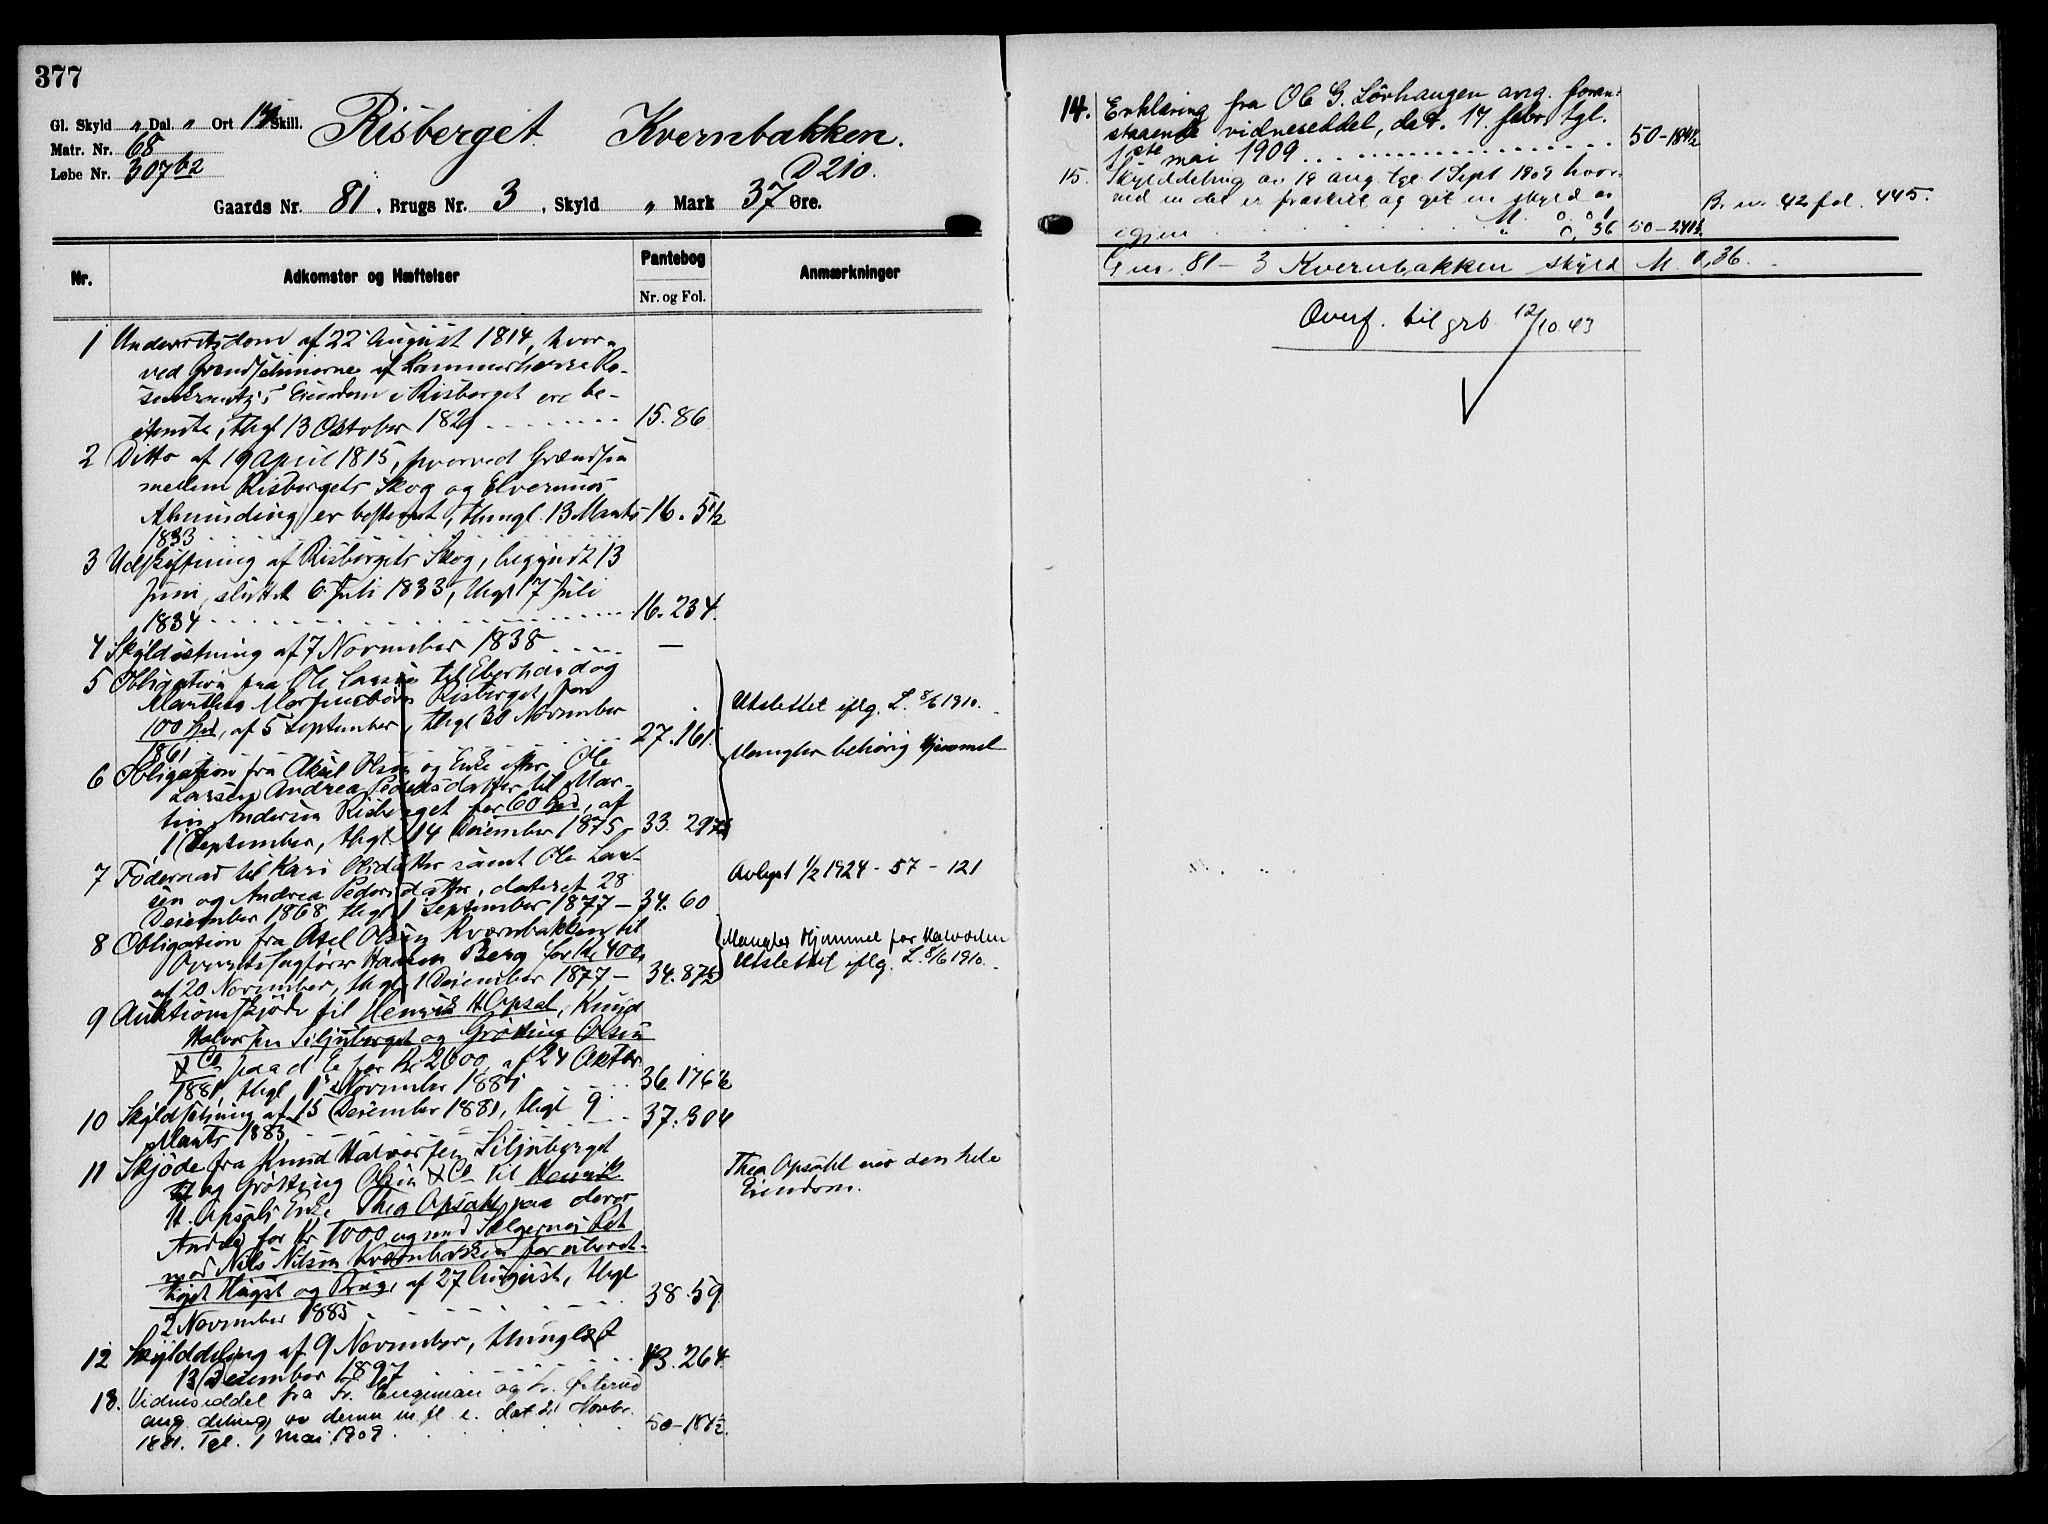 377
Gl. Skyld „ Dal. „ Ort Skill. Risberget. Kvernbakken.
Matr. Nr. 68
Løbe Nr. 307b2 D 210.
Gaards Nr. 81, Brugs Nr. 3, Skyld „ Mark 37 Øre.
Nr. Adkomster og Hæftelser Pantebog Anmærkninger
Nr. og Fol.
1 Underretsdom af 22 August 1814, hvor-
ved Grændselinierne af Kammerherre Ro-
senkrantz's Eiendom i Risberget ere be-
stemte, thgl 13 Oktober 1829 15.86
2 Ditto af 19 April 1815, hvorved Grændsen
mellem Risbergets Skog og Elverums
Alminding er bestemt, thingl. 13 Marts 16. 51½
1833
3 Udskiftning af Risbergets Skog, begyndt 13
Juni, sluttet 6 Juli 1833, thgl 17 Juli
1834 16.234
4 Skyldsetning af 7 November 1838 —
5 Obligation fra Ole Larsen til Eberhard og
Marthea Risberget, for
100 Spd, af 5 September, thgl 30 November
1861 27.161
Utslettet iflg. L. 8/6 1910.
Mangler behörig Hjemmel
6 Obligation fra Aksel Olsen og Enke efter Ole
Larsen Andrea Pedersdatter til Mar-
tin Andersen Risberget for 60 Spd, af
1 September, thgl 14 Desember 1875 33.
7 Föderaad til Kari Olsdatter samt Ole Lar-
sen og Andrea Pedersdatter, dateret 28
Desember 1868, thgl 1 September 1877 — 34.60
Avlyst 1/2 1924 - 57 - 121
8 Obligation fra Axel Olsen Kværnbakken til
Overretssagförer Haaken Berg for Kr 400,
af 20 November, thgl 1 Desember 1877 — 34.875
Mangler Hjemmel for
Utslettet iflg. L. 8/6 1910.
9 Auktionsskjöde til Henrik H Opsal, Knud
Halvorsen Siljuberget og Grötting Olsen
& Co paa d E for Kr 2600, af 24 Oktbr
1881, thgl 1 November 1881 36.176½
10 Skyldsetning af 15 Desember 1881, thgl 9
Marts 1883 37.304
11 Skjöde fra Knud Halvorsen Siljuberget
og Grötting Olsen & Co til Henrik
H. Opsals Enke Thea Opsahl, paa deres
Andel for Kr 1000 og med Sælgernes Ret
mod Nils Nilsen Kvernbakken for uberet-
tiget Hugst og Brug, af 27 August, thgl
2 November 1885 38.59
Thea Opsahl eier den hele
Eiendom.
12 Skylddeling af 9 November, thinglæst
13 Desember 1897 43.264
13. Vidneseddel fra Fr. Engeman og
ang. deling av denne m. fl. e. dat 21 Novbr.
1881. Tgl. 1 mai 1909 50-184½
14. Erklæring fra Ole G. Lövhaugen ang. foran-
staaende vidneseddel, dat. 17 febr. tgl.
1ste mai 1909 50-184½
15. Skylddeling av 19 aug. tgl. 1 Sept 1909 hvor-
ved en del er fraskilt og git en skyld av
M. 0.01 B. nr. 42 fol. 445.
igjen „ 0,36 50-
Gnr. 81 - 3 Kvernbakken skyld M. 0,36.
Overf. til grb. 12/10 43